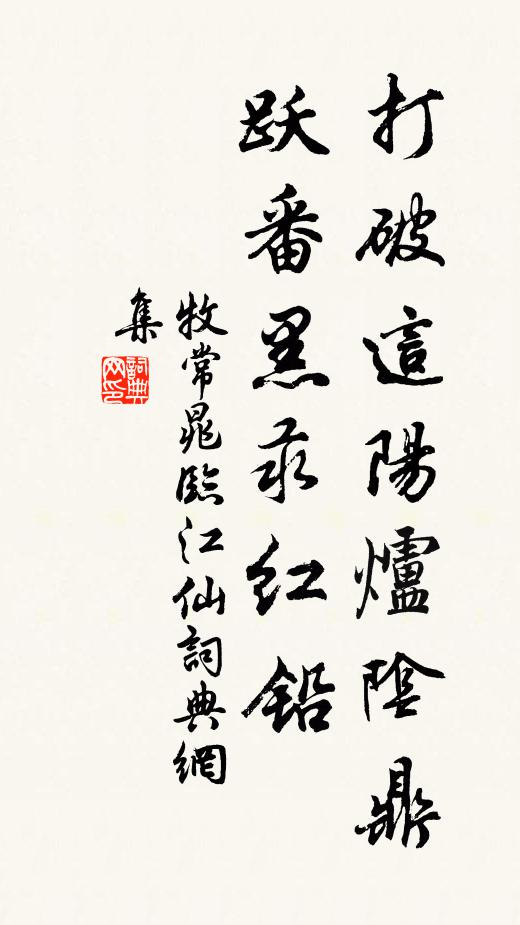 打破這陽爐陰鼎
跃番黑汞红鉛
牧常晁臨江仙詞典網
集
詞典网印